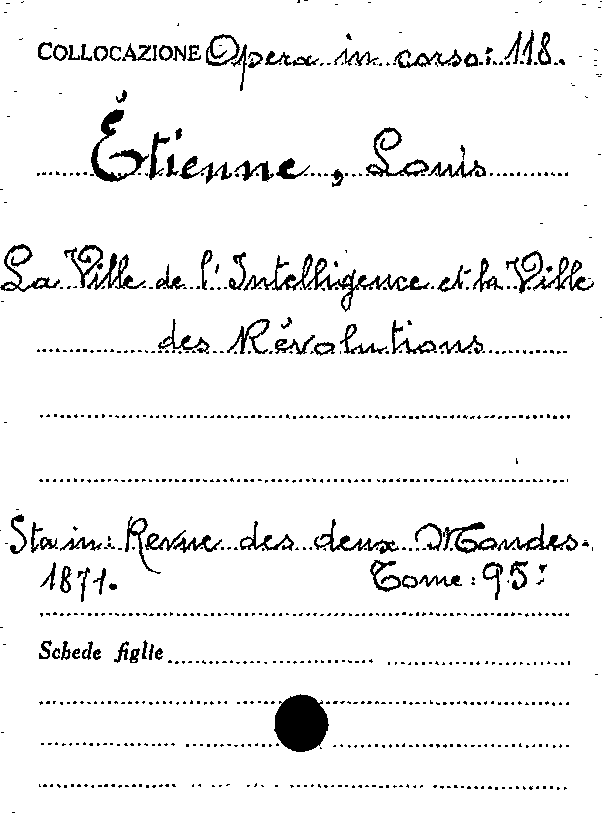 COLLOCAZIONE Opera in corso: 118.
Étienne, Louis
La Ville de l'Intelligence et la Ville
des Révolutions
Sta in: Revue des deux Mondes.
1871. Tome: 95:
Schede figlie